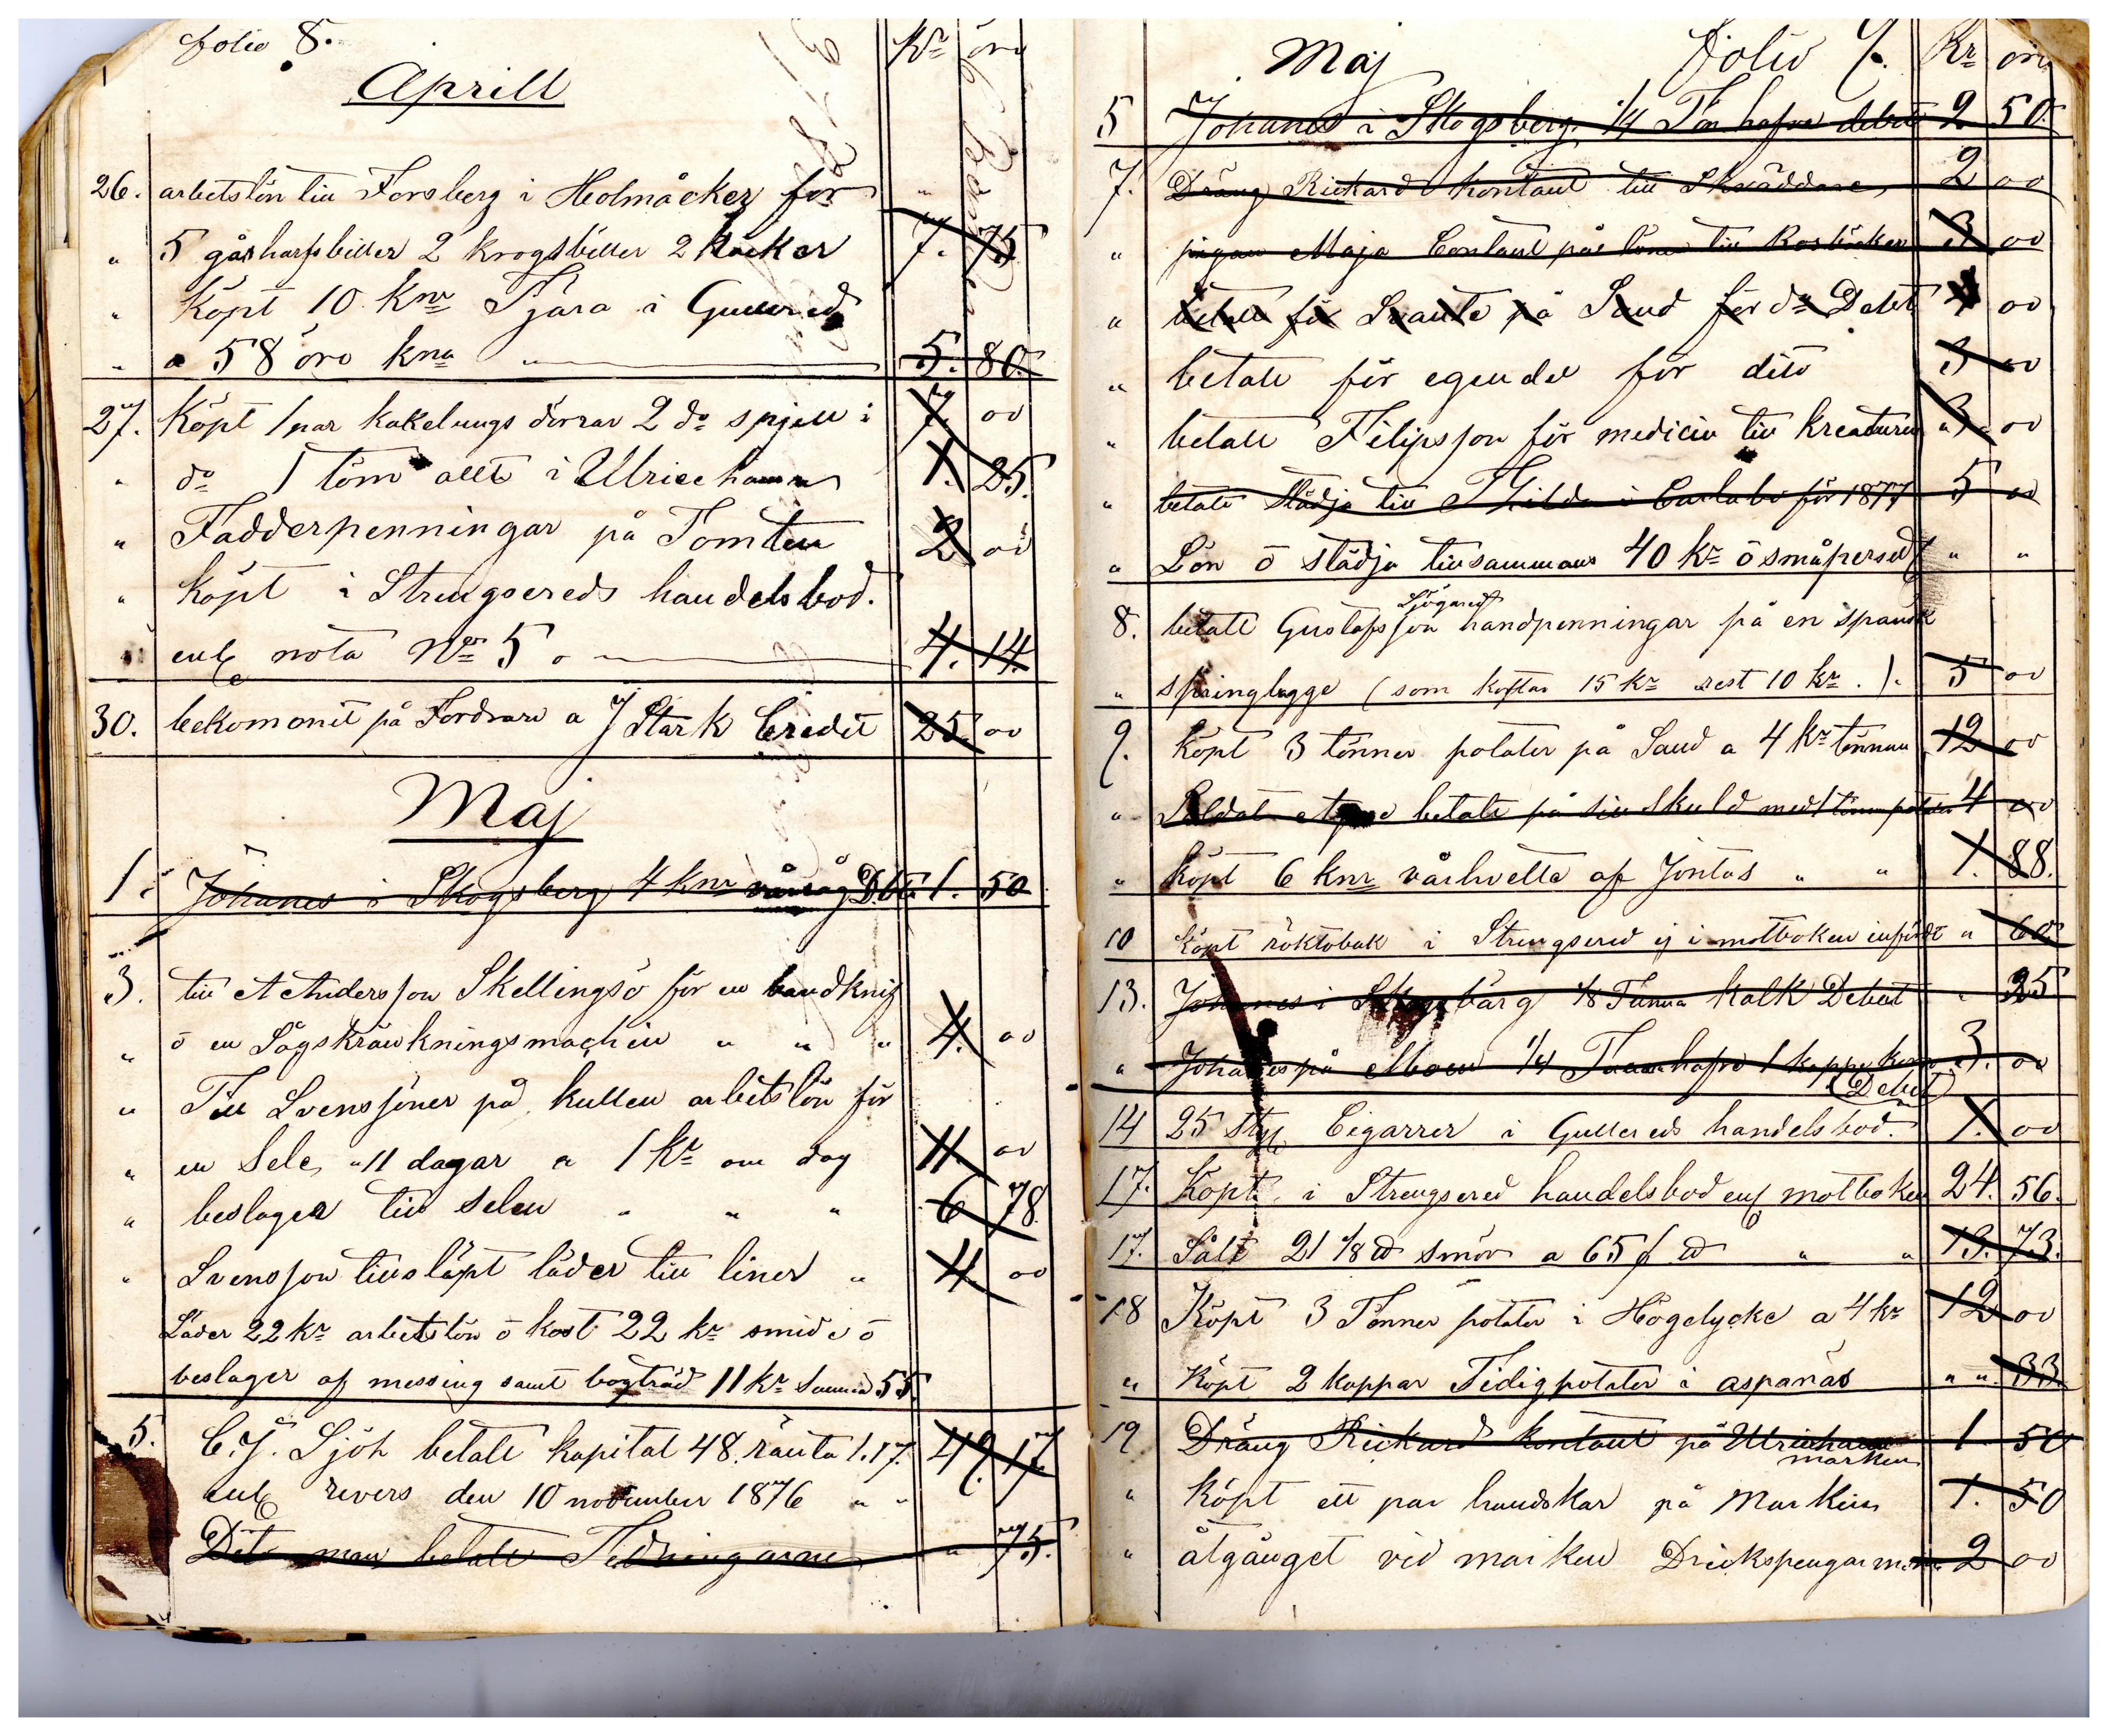 folio 8. Kr öre
Aprill
26. arbetslön till Forsberg i Holmåcker for "
" 5 gåsharfsbiller 2 krogsbiller 2 krokar 7. 75
" Köpt 10 Knr Tjära i Gullered
" a 58 öre kna " 5. 80.
27. Köpt 1 par kakelungs dörrar 2 do spjell i 7. 00
" do 1 töm allt i Ulricehamn 1. 25.
" Fadderpenningar på Tomten 2 00
" köpt i Strengsereds handelsbod.
" enl nota No 5 4. 14.
30. bekommit på Fordran a J Stark Credit 25. 00
Maj
1. Johanes i Skogsberg 4 knr Debet 1. 50
3. till A Andersson Skellingsö för en bandknif
" ö en Sågskränkningsmachin " " " 4. 00
" Till Svenssöner på kullen arbetslön för
" en Sele, 11 dagar a 1 Kr om dag 11. 00
" beslager till selen " " " 6 78.
" Svensson tillsläpt läder till liner " 4. 00
Läder 22 Kr arbetslön ö kost 22 kr smide ö
beslager af messing samt bogträd 11 Kr Summa 55.
5. C. J. Sjöh betalt kapital 48. ränta 1.17. 49. 17.
enl revers den 10 november 1876 " "
betalt Tidningarne " 75.
Maj folio 9. Kr öre
5 Johanes i Skogsberg 1/4 Tön hafre debet 2 50.
7. Dräng Rickard kontant till Skräddare 2 00
" pigan Maja Contant på 3 00
" betalt för Svante på Sand för do Debet 4 00
" betalt för egen del för dito 3 00
" betalt Filipsson för medicin till kreaturen 3. 00
" betalt Städja till Thilda i Carlabo för 1877 5 00
" Lön ö städja tillsammans 40 kr ö småpersedl " "
Sjögared
8. betalt Gustafsson handpenningar på en spansk
" springlagge (som kostar 15 kr rest 10 kr.). 5 00
9. köpt 3 tönner potater på Sand a 4 kr tönnan 12 00
" Soldat betalt på sin skuld med 1 tönn potater 4 00
" köpt 6 knr vårhvette af Jontas " " 1. 88.
10 Köpt röktobak i Strengsered ej i motboken infördt " 60.
13. Johanes i Skogsbärg 1/8 Tunna kalk Debet " 25
" Johanes på Moen 1/4 Tunna hafre 1 kappe korn 3. 00
(Debet)
14 25 stg Cigarrer i Gullereds handelsbod. 1. 00
17. Köpt i Strengsered handelsbod enl motboken 24. 56.
17. Sålt 21 1/8 ℔ smör a 65 f ℔ " " 13. 73.
18 Köpt 3 Tönner potater i Högelycke a 4 kr 12 00
" Köpt 2 kappar Tidigpotater i aspanäs " " 33.
19 Dräng Rickard kontant på Ulricehamn 1 50
marken
" köpt ett par handskar på Marken 1. 50
" åtgånget vid marken Drickspengar m.m. 2 00